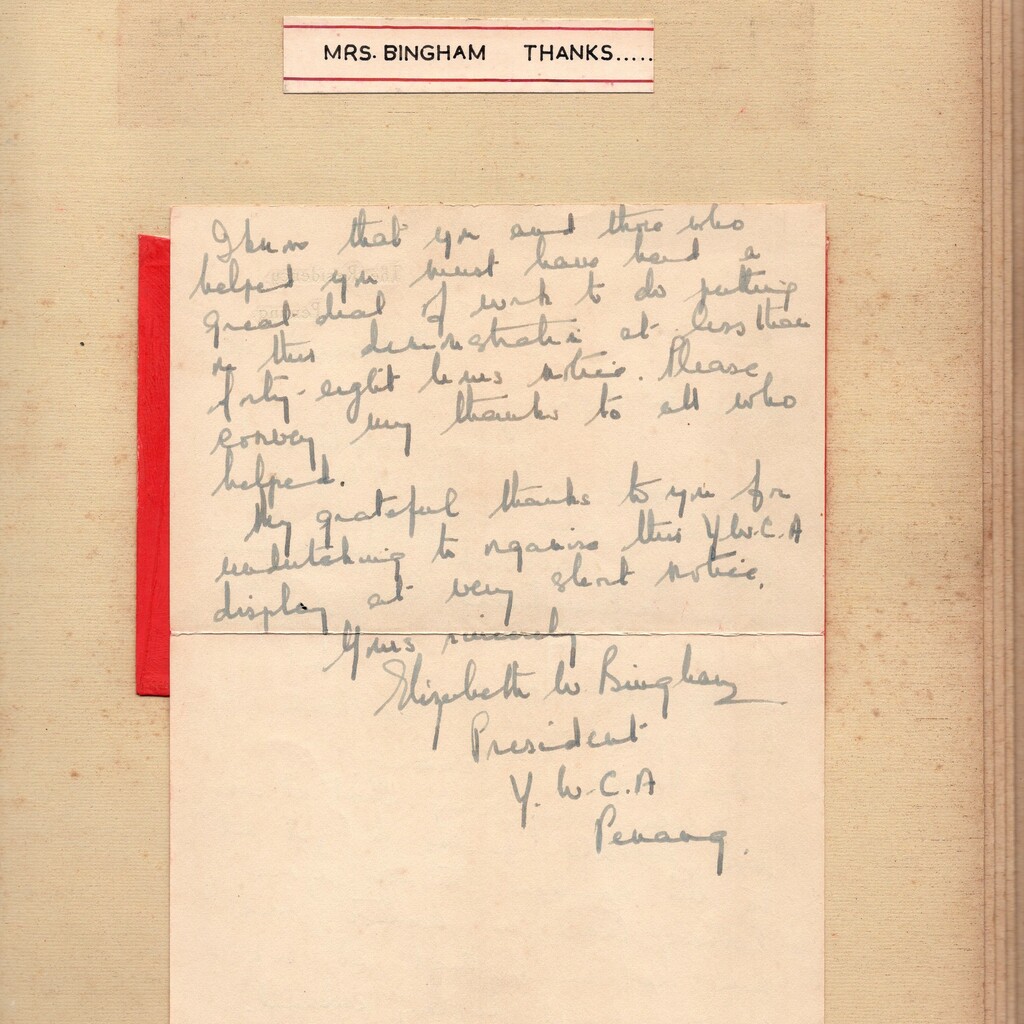 MRS. BINGHAM THANKS.....
I know that you and those who
helped you must have had a
great deal of work to do putting
on this demonstration at less than
forty-eight hours notice. Please
convey my thanks to all who
helped.
My grateful thanks to you for
undertaking to organise this Y.W.C.A
display at very short notice.
Yours sincerely
Elizabeth W. Bingham
President
Y. W. C. A
Penang.
The Residency
Penang.